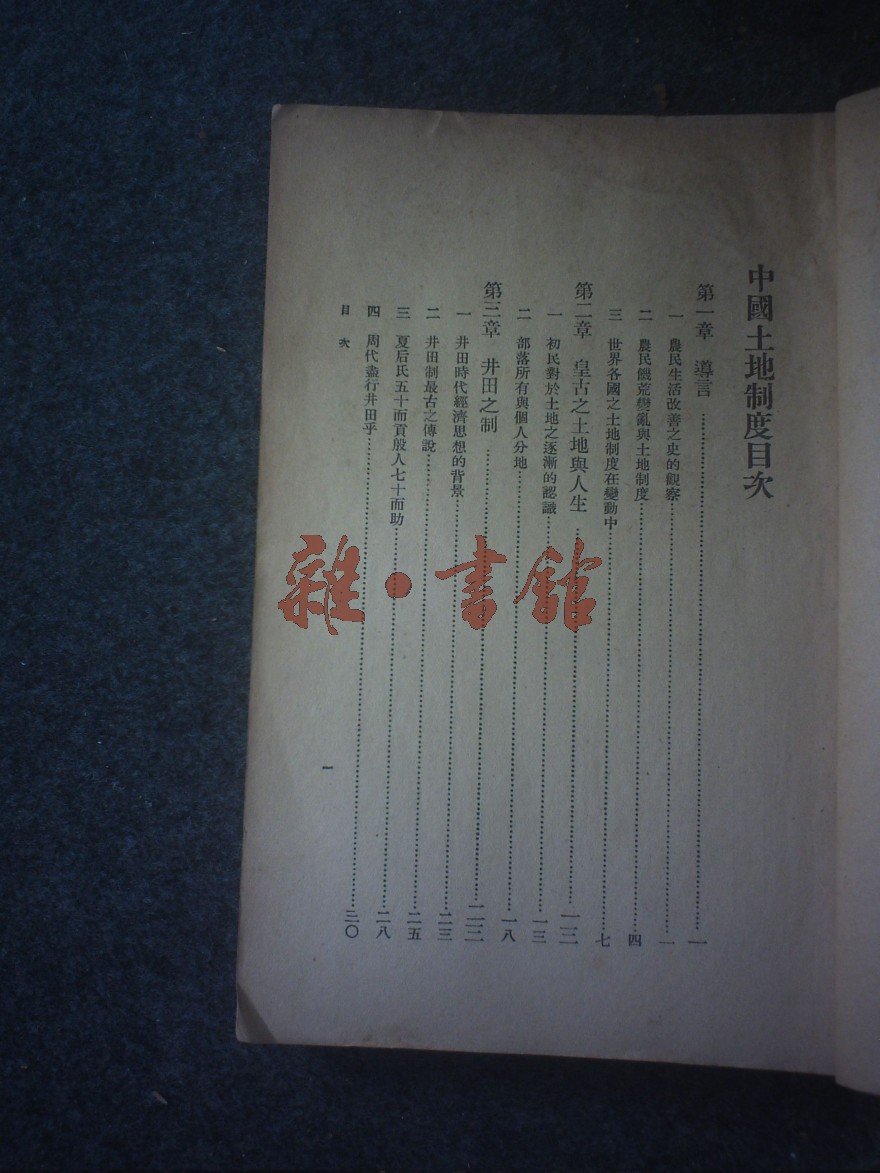 中國土地制度目次
第一章　導言……一
一　農民生活改善之史的觀察……一
二　農民饑荒變亂與土地制度……四
三　世界各國之土地制度在變動中……七
第二章　皇古之土地與人生……一二
一　初民對於土地之逐漸的認識……一三
二　部落所有與個人分地……一八
第三章　井田之制……二二
一　井田時代經濟思想的背景……二三
二　井田制最古之傳說……二五
三　夏后氏五十而貢殷人七十而助……二八
四　周代盡行井田乎……三〇
目次
一
雜·書館